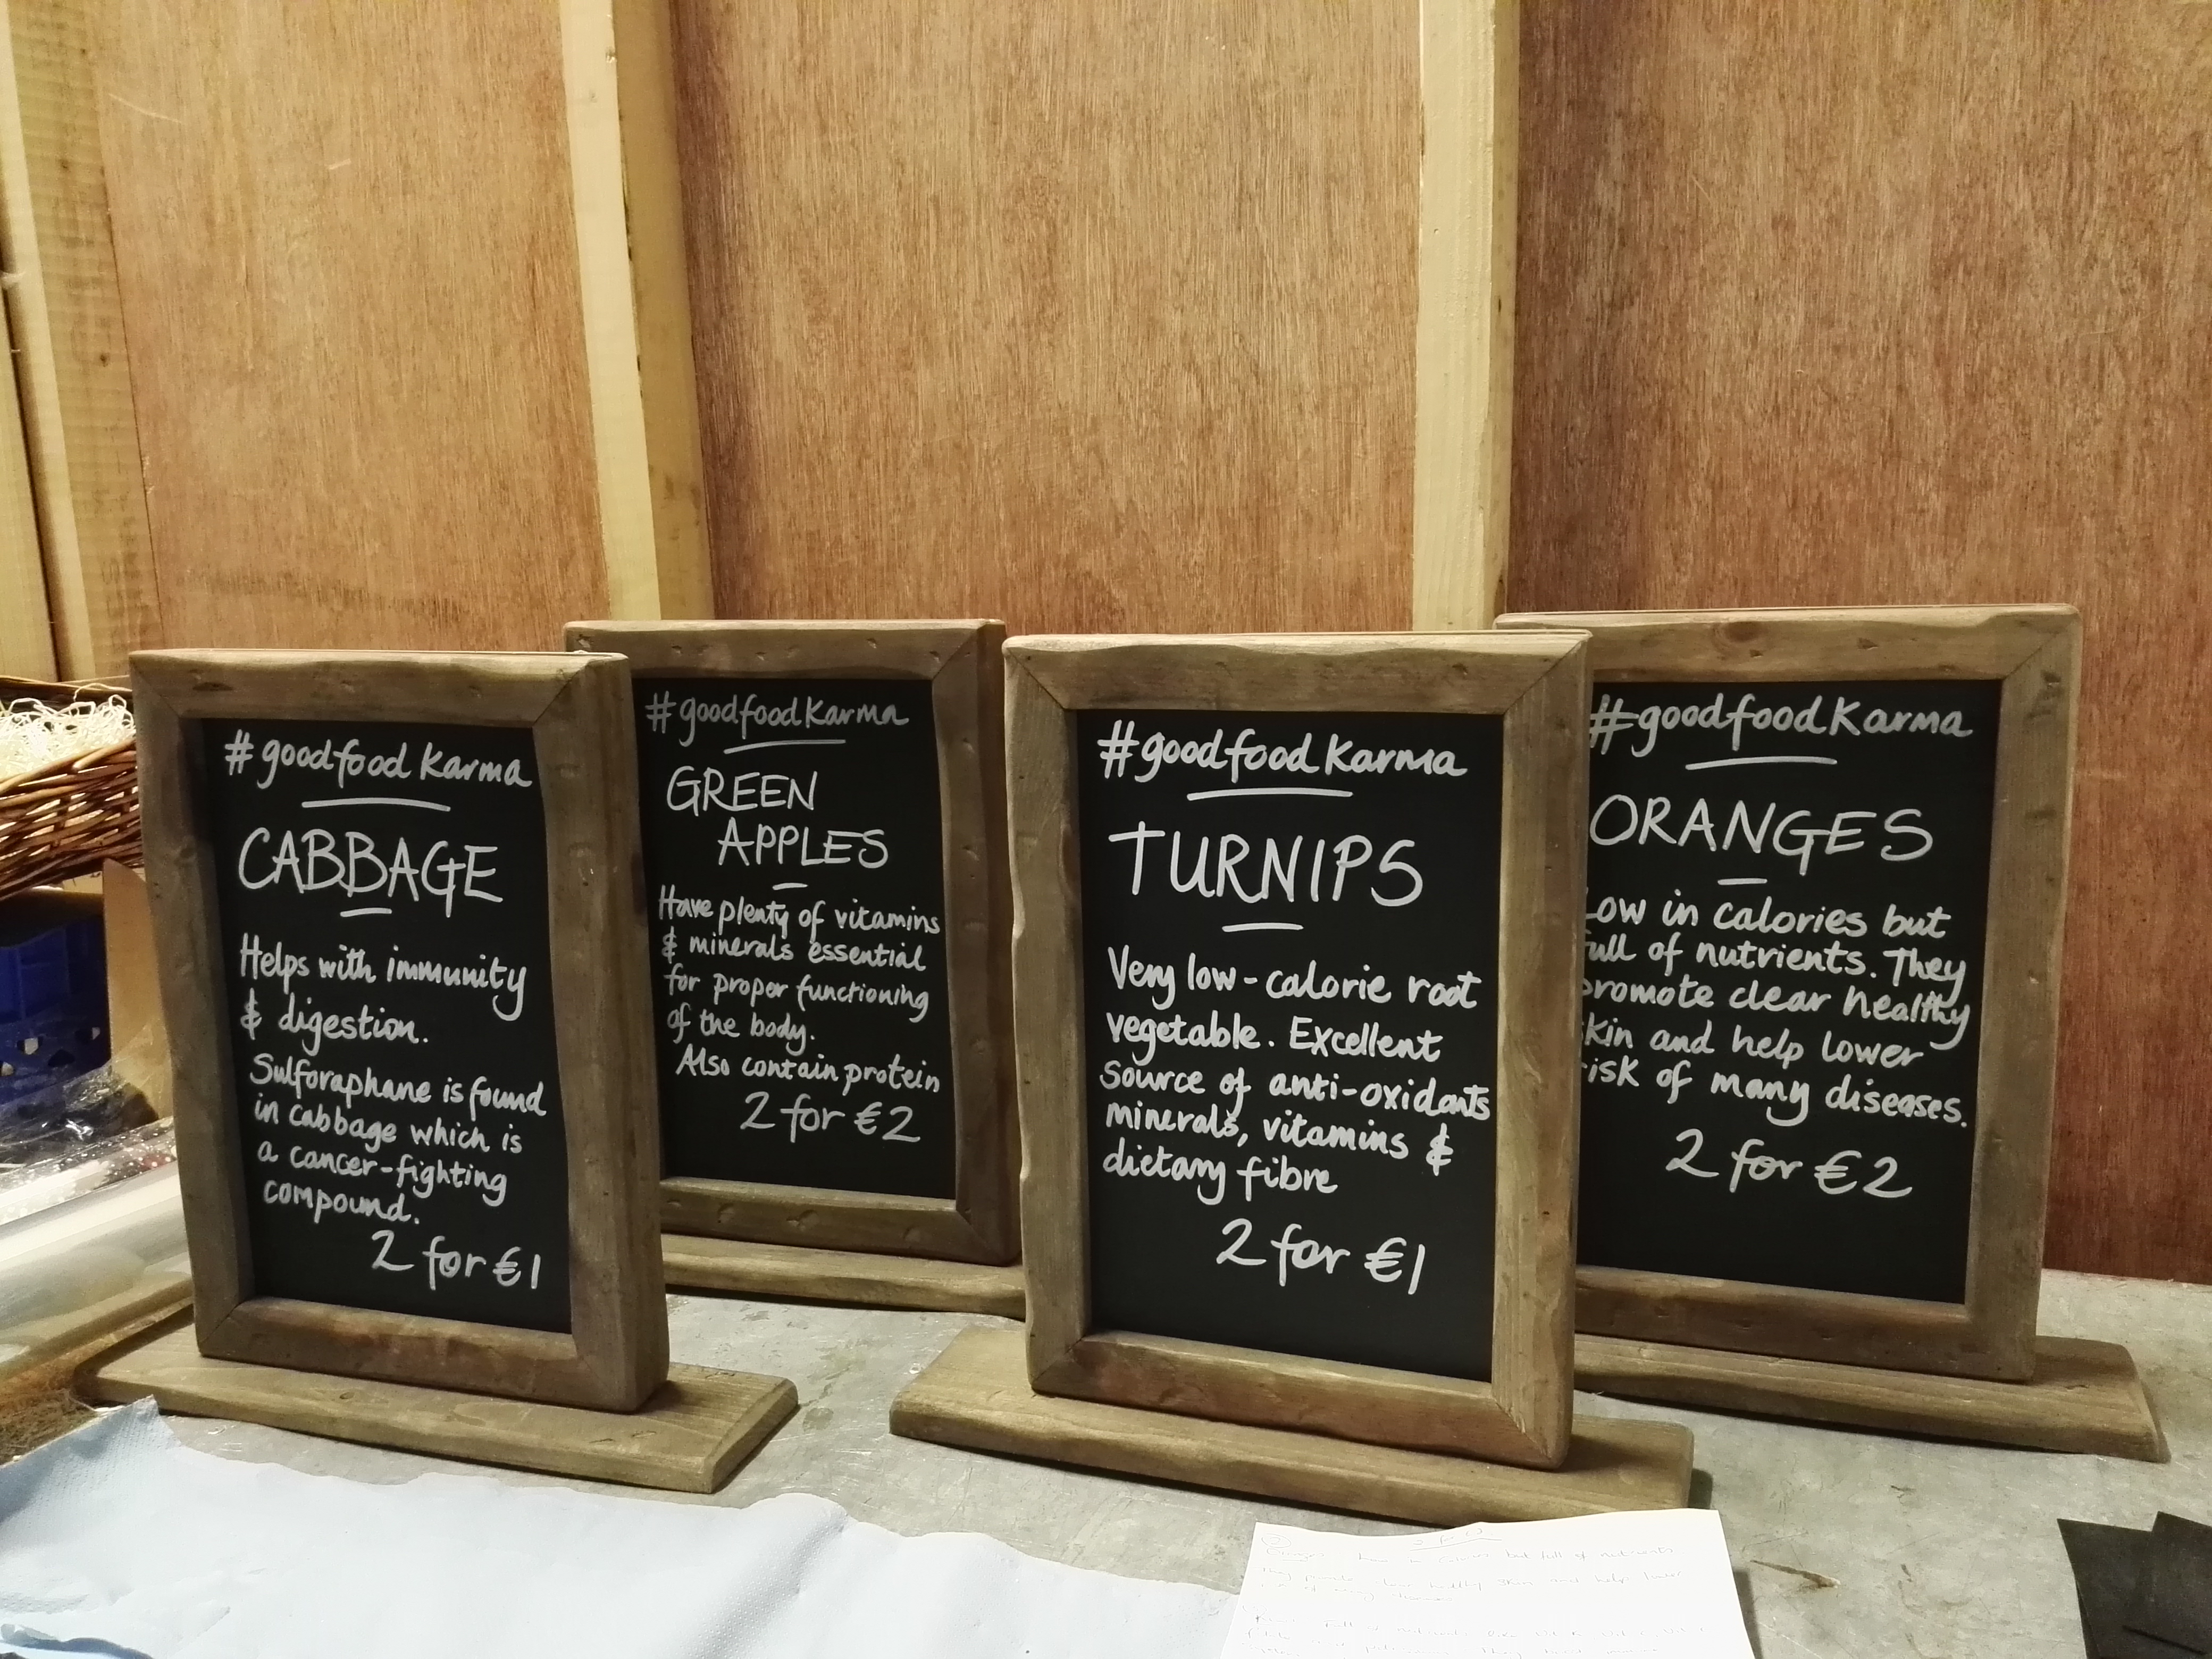 #goodfoodKarma
CABBAGE
Helps with immunity
& digestion.
Sulforaphane is found
in cabbage which is
a cancer-fighting
compound.
2 for €1
#goodfoodKarma
GREEN
APPLES
Have plenty of vitamins
& minerals essential
for proper functioning
of the body.
Also contain protein
2 for €2
#goodfoodKarma
TURNIPS
Very low-calorie root
vegetable. Excellent
source of anti-oxidants
minerals, vitamins &
dietary fibre
2 for €1
#goodfoodKarma
ORANGES
Low in calories but
full of nutrients. They
promote clear healthy
skin and help lower
risk of many diseases.
2 for €2
but full of nutrients